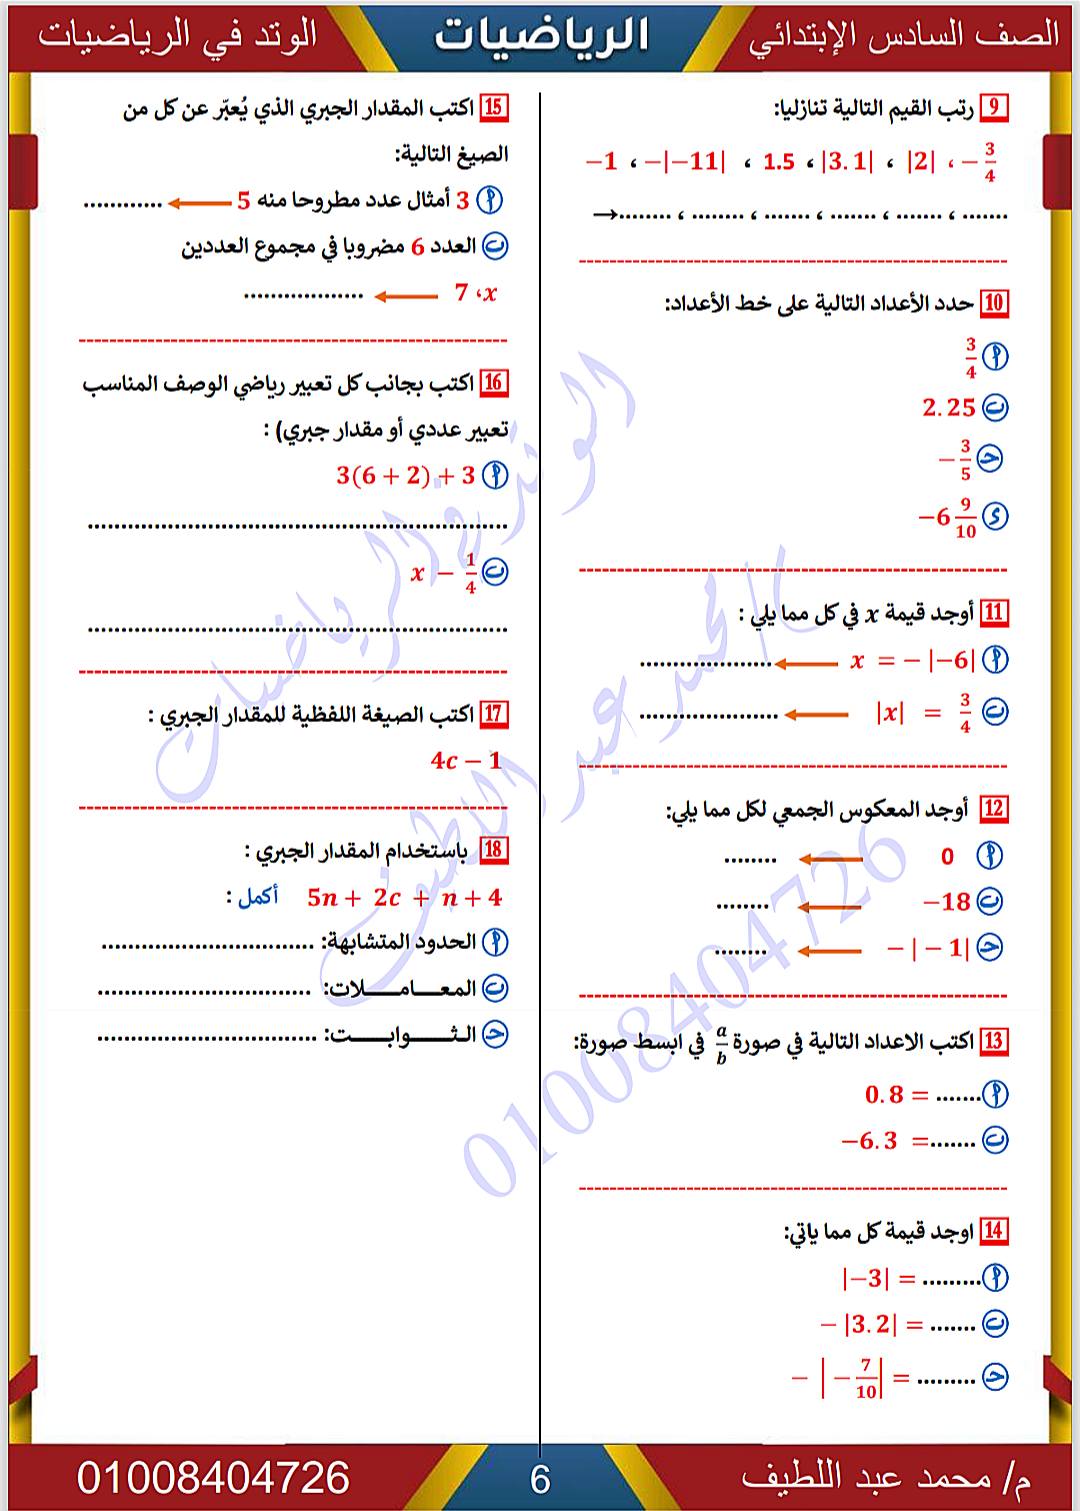 الصف السادس الإبتدائي
الرياضيات
الوتد في الرياضيات
9 رتب القيم التالية تنازليا:
−3/4 ، |2| ، |3.1| ، 1.5 ، −|−11| ، −1
....... ، ....... ، ....... ، ....... ، ........ ، ........→
10 حدد الأعداد التالية على خط الأعداد:
أ 3/4
ب 2.25
ج −3/5
د −6 9/10
11 أوجد قيمة x في كل مما يلي :
أ x = −|−6| ← ....................
ب |x| = 3/4 ← .....................
12 أوجد المعكوس الجمعي لكل مما يلي:
أ 0 ← ........
ب −18 ← ........
ج −|−1| ← ........
13 اكتب الاعداد التالية في صورة a/b في ابسط صورة:
أ 0.8 = .......
ب −6.3 = .......
14 اوجد قيمة كل مما ياتي:
أ |−3| = .........
ب −|3.2| = .......
ج −|−7/10| = .........
15 اكتب المقدار الجبري الذي يُعبّر عن كل من
الصيغ التالية:
أ 3 أمثال عدد مطروحا منه 5 ← ............
ب العدد 6 مضروبا في مجموع العددين
x، 7 ← ..................
16 اكتب بجانب كل تعبير رياضي الوصف المناسب
تعبير عددي أو مقدار جبري) :
أ 3(6 + 2) + 3
...............................................................
ب x − 1/4
...............................................................
17 اكتب الصيغة اللفظية للمقدار الجبري :
4c − 1
18 باستخدام المقدار الجبري :
5n + 2c + n + 4 أكمل :
أ الحدود المتشابهة: ................................
ب المعـــامـــــلات: ................................
ج الـثـــــوابـــــت: .................................
الوتد في الرياضيات
م/ محمد عبد اللطيف
01008404726
م/ محمد عبد اللطيف
6
01008404726